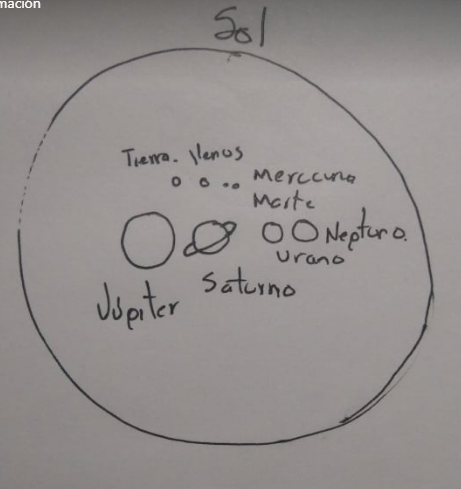 mación
Sol
Tierra. Venus
Merccurio
Marte
Neptuno.
Urano
Saturno
Júpiter